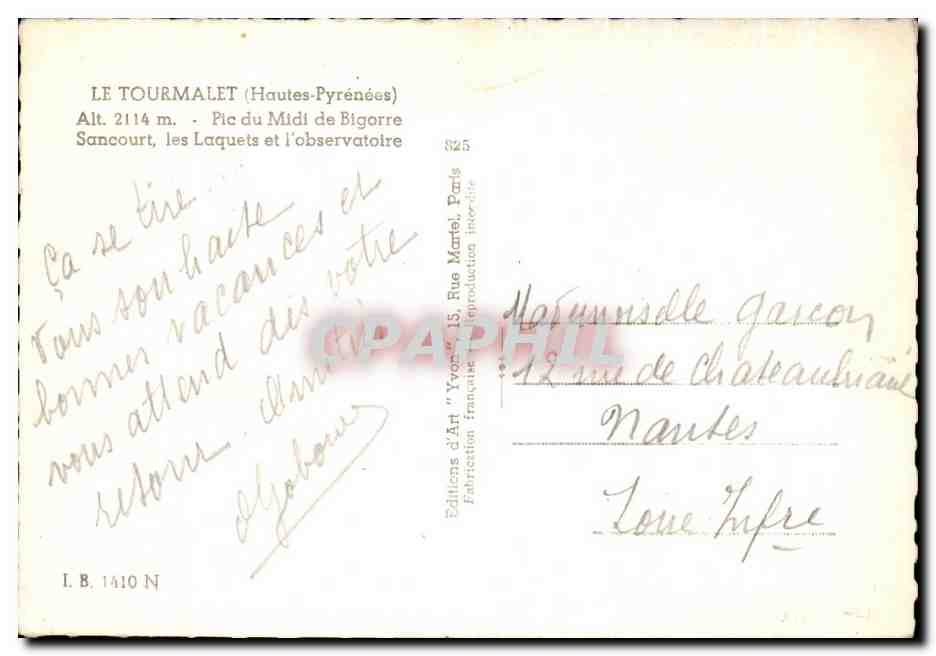 LE TOURMALET (Hautes-Pyrénées)
Alt. 2114 m. - Pic du Midi de Bigorre
Sancourt, les Laquets et l'observatoire
Ça se tire.
Vous souhaite
bonnes vacances et
vous attend dès votre
retour. Amitiés
I. B. 1410 N
825
Editions d'Art "Yvon", 15, Rue Martel, Paris
Fabrication française - Reproduction interdite
CPAPHIL
Mademoiselle Gascoin
12 rue de Chateaubriand
Nantes
Loire Infre